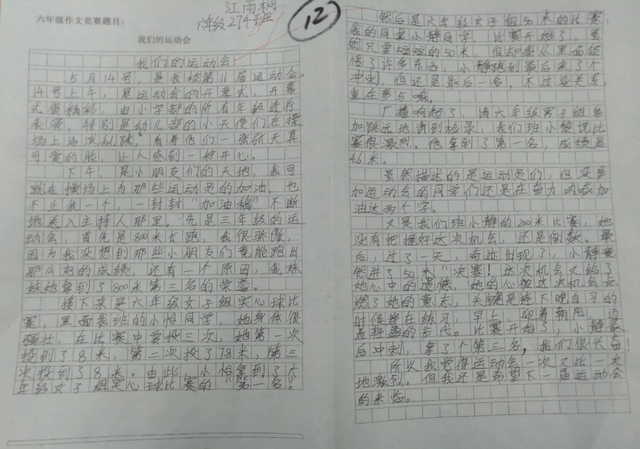 六年级作文竞赛题目:
江雨桐
六年级274班
12
我们的运动会
我们的运动会
5月14号,是我校第11届运动会。
14号上午,是运动会的开幕式,开幕
式要精彩,由小学部的所有年级进行
表演,特别是幼儿部的小天使们在操
场上活泼乱跳,看着他们一张张天真
可爱的脸,让人感到一样开心。
下午,是小朋友们的天地,我可
就在操场上为那些运动员的加油,也
不止我一个,一封封“加油稿”不断
地送入主持人那里。先是三年级的运
动会,首先是800米长跑,我很紧张,
因为我没想到那些小朋友们竟能跑出
那么好的成绩,还有一个原因,我妹
妹她拿到了800米第三名的荣誉。
接下来是六年级女子组实心球比
赛,里面我班的小怡同学,她身体很
强壮,在比赛中要投三次,她第一次
投到了8米,第二次投了7.8米,第三
次投到了8米。由此,小怡拿到了六
年级女子组实心球比赛的“第一名”。
然后是六年级女子组50米的比赛,
我的同桌小静同学,比赛开始了,虽
然只要短短的50米,但却要从里面领
悟了许多东西,小静跑到最后来了个
冲刺,但还是最后一名,不过没关系,
重在参与嘛。
广播响起了,请六年级男子组参
加跳远地请到检录,我们班小
赛很激烈。他拿到了第一名,成绩是
4.6米。
虽然描述的是运动员们,但没参
加运动会的同学们还是在奋力呐喊加
油这两个字。
又是我们班小静的200米比赛,她
没有把握好这次机会,还是倒数。最
后,过了一天,奇迹出现了,小静竟
然进了50米“决赛!这次机会又给了
她心中的遗憾,她的心想这次机会会
燃了她的意志,关键是烈下晚自习的
时候能在练习,早上,迎着朝阳,迈
着轻盈的步伐。比赛开始了,小静最
后冲刺,拿了个第三名,我们很兴奋!
所以我觉得运动会一次又比一次
地激烈。但我还是希望下一届运动会
的来临。